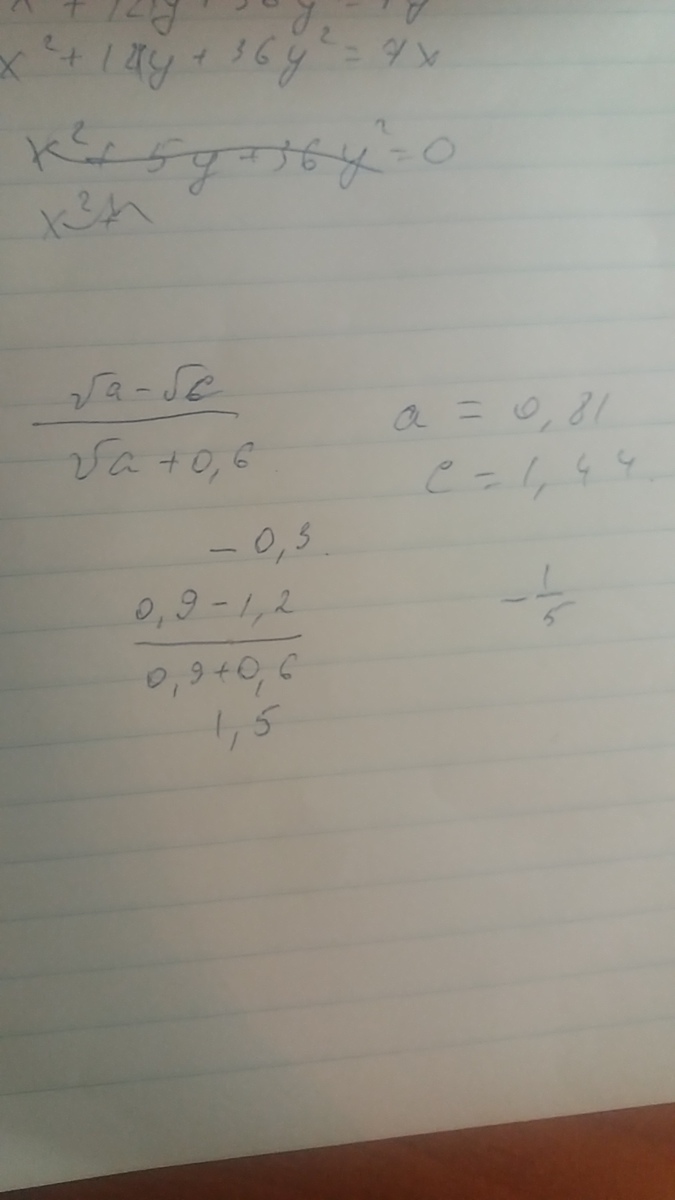 x² + 12y + 36y² = 7x
x² + 5y + 36y² = 0
x²
√a - √c
√a + 0,6
a = 0,81
c = 1,44.
- 0,3.
0,9 - 1,2
0,9 + 0,6
1,5
- 1/5